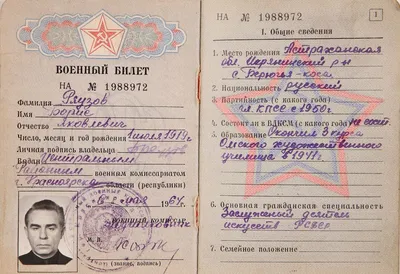 ВОЕННЫЙ БИЛЕТ
НА № 1988972
Фамилия Ряузов
Имя Борис
Отчество Яковлевич
Число, месяц и год рождения 1919 г.
Личная подпись владельца
Выдан Центральным
Районным военным комиссариатом
г. Красноярска (края) области (республики)
мая 1967 г.
Военный комиссар
(звание, подпись)
НА № 1988972
1
I. Общие сведения
1. Место рождения Астраханская
обл. Икрянинский р-н
с. Верючья-коса
2. Национальность русский
3. Партийность (с какого года)
чл. КПСС с 1950 г.
4. Состоит ли в ВЛКСМ (с какого года) не сост.
5. Образование Окончил 3 курса
Омского художественного
училища в 1941 г.
6. Основная гражданская специальность
Заслуженный деятель
искусств РСФСР
7. Семейное положение